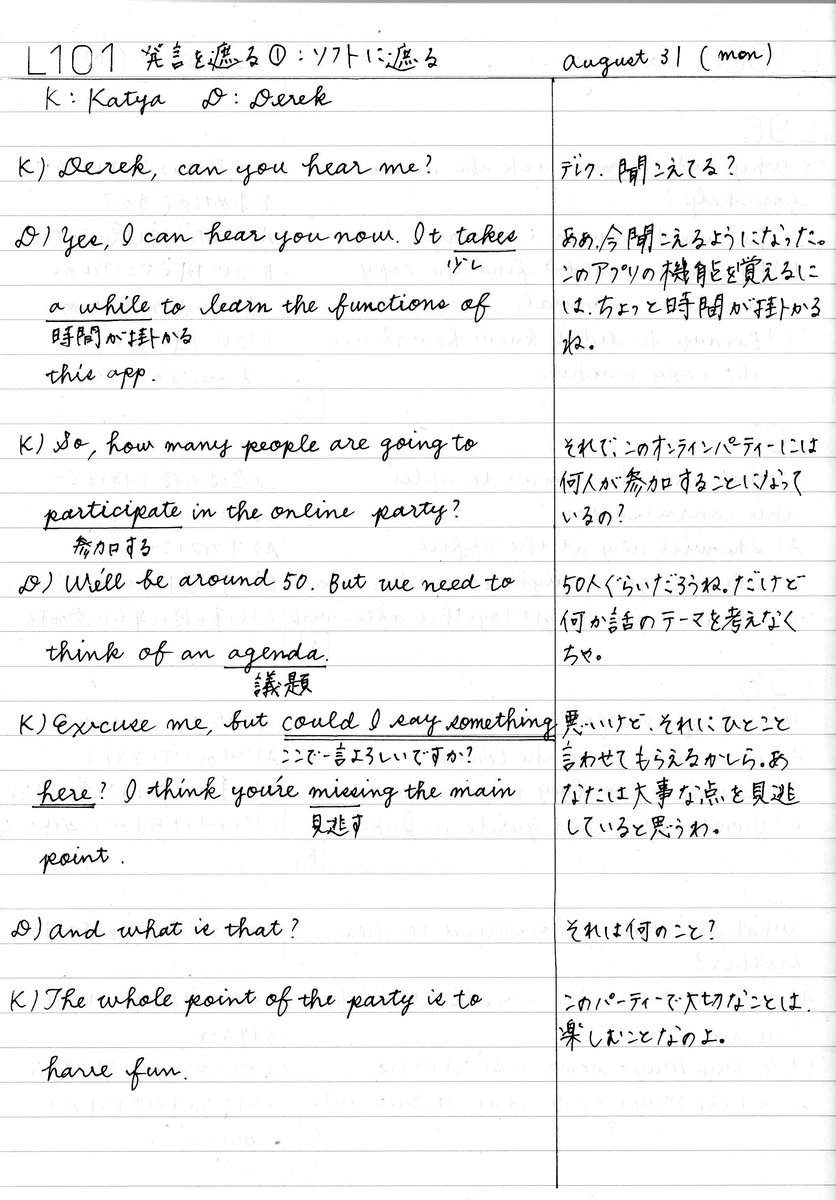 L101 発言を遮る①:ソフトに遮る august 31 (mon)
K: Katya D: Derek
K) Derek, can you hear me?
デレク、聞こえてる?
D) Yes, I can hear you now. It takes
少し
a while to learn the functions of
時間が掛かる
this app.
ああ、今聞こえるようになった。
このアプリの機能を覚えるに
は、ちょっと時間が掛かる
ね。
K) So, how many people are going to
participate in the online party?
参加する
それで、このオンラインパーティーには
何人が参加することになって
いるの?
D) We'll be around 50. But we need to
think of an agenda.
議題
50人ぐらいだろうね。だけど
何か話のテーマを考えなく
ちゃ。
K) Excuse me, but could I say something
ここで一言よろしいですか?
here? I think you're missing the main
見逃す
point.
悪いけど、それにひとこと
言わせてもらえるかしら。あ
なたは大事な点を見逃
していると思うわ。
D) And what is that?
それは何のこと?
K) The whole point of the party is to
have fun.
このパーティーで大切なことは、
楽しむことなのよ。